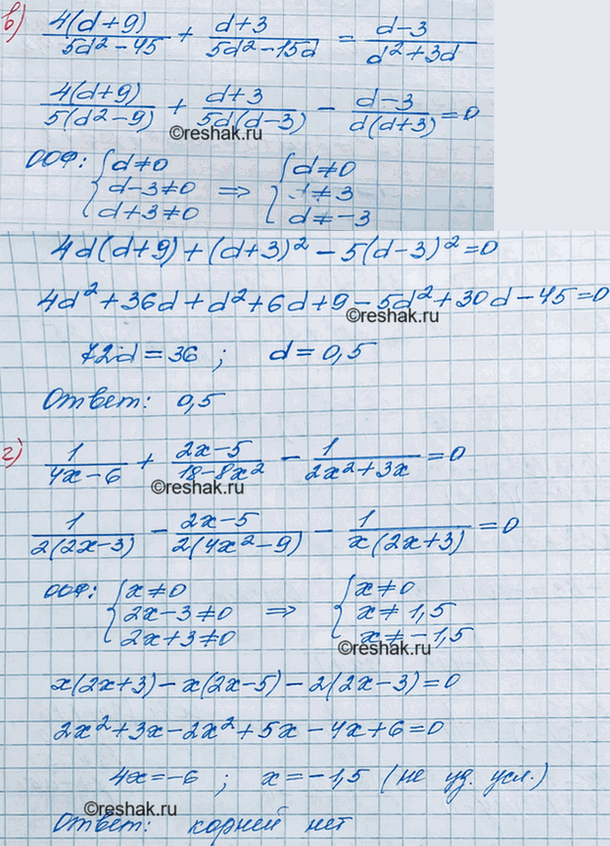 в) 4(d+9)/(5d²-45) + (d+3)/(5d²-15d) = (d-3)/(d²+3d)
4(d+9)/(5(d²-9)) + (d+3)/(5d(d-3)) - (d-3)/(d(d+3)) = 0
©reshak.ru
ООФ: { d≠0 ; d-3≠0 ; d+3≠0 => { d≠0 ; d≠3 ; d≠-3
4d(d+9)+(d+3)²-5(d-3)²=0
4d²+36d+d²+6d+9-5d²+30d-45=0
©reshak.ru
72d=36 ; d=0,5
Ответ: 0,5
г) 1/(4x-6) + (2x-5)/(18-8x²) - 1/(2x²+3x) = 0
©reshak.ru
1/(2(2x-3)) - (2x-5)/(2(4x²-9)) - 1/(x(2x+3)) = 0
ООФ: { x≠0 ; 2x-3≠0 ; 2x+3≠0 => { x≠0 ; x≠1,5 ; x≠-1,5
©reshak.ru
x(2x+3)-x(2x-5)-2(2x-3)=0
2x²+3x-2x²+5x-4x+6=0
4x=-6 ; x=-1,5 (не уд. усл.)
©reshak.ru
Ответ: корней нет